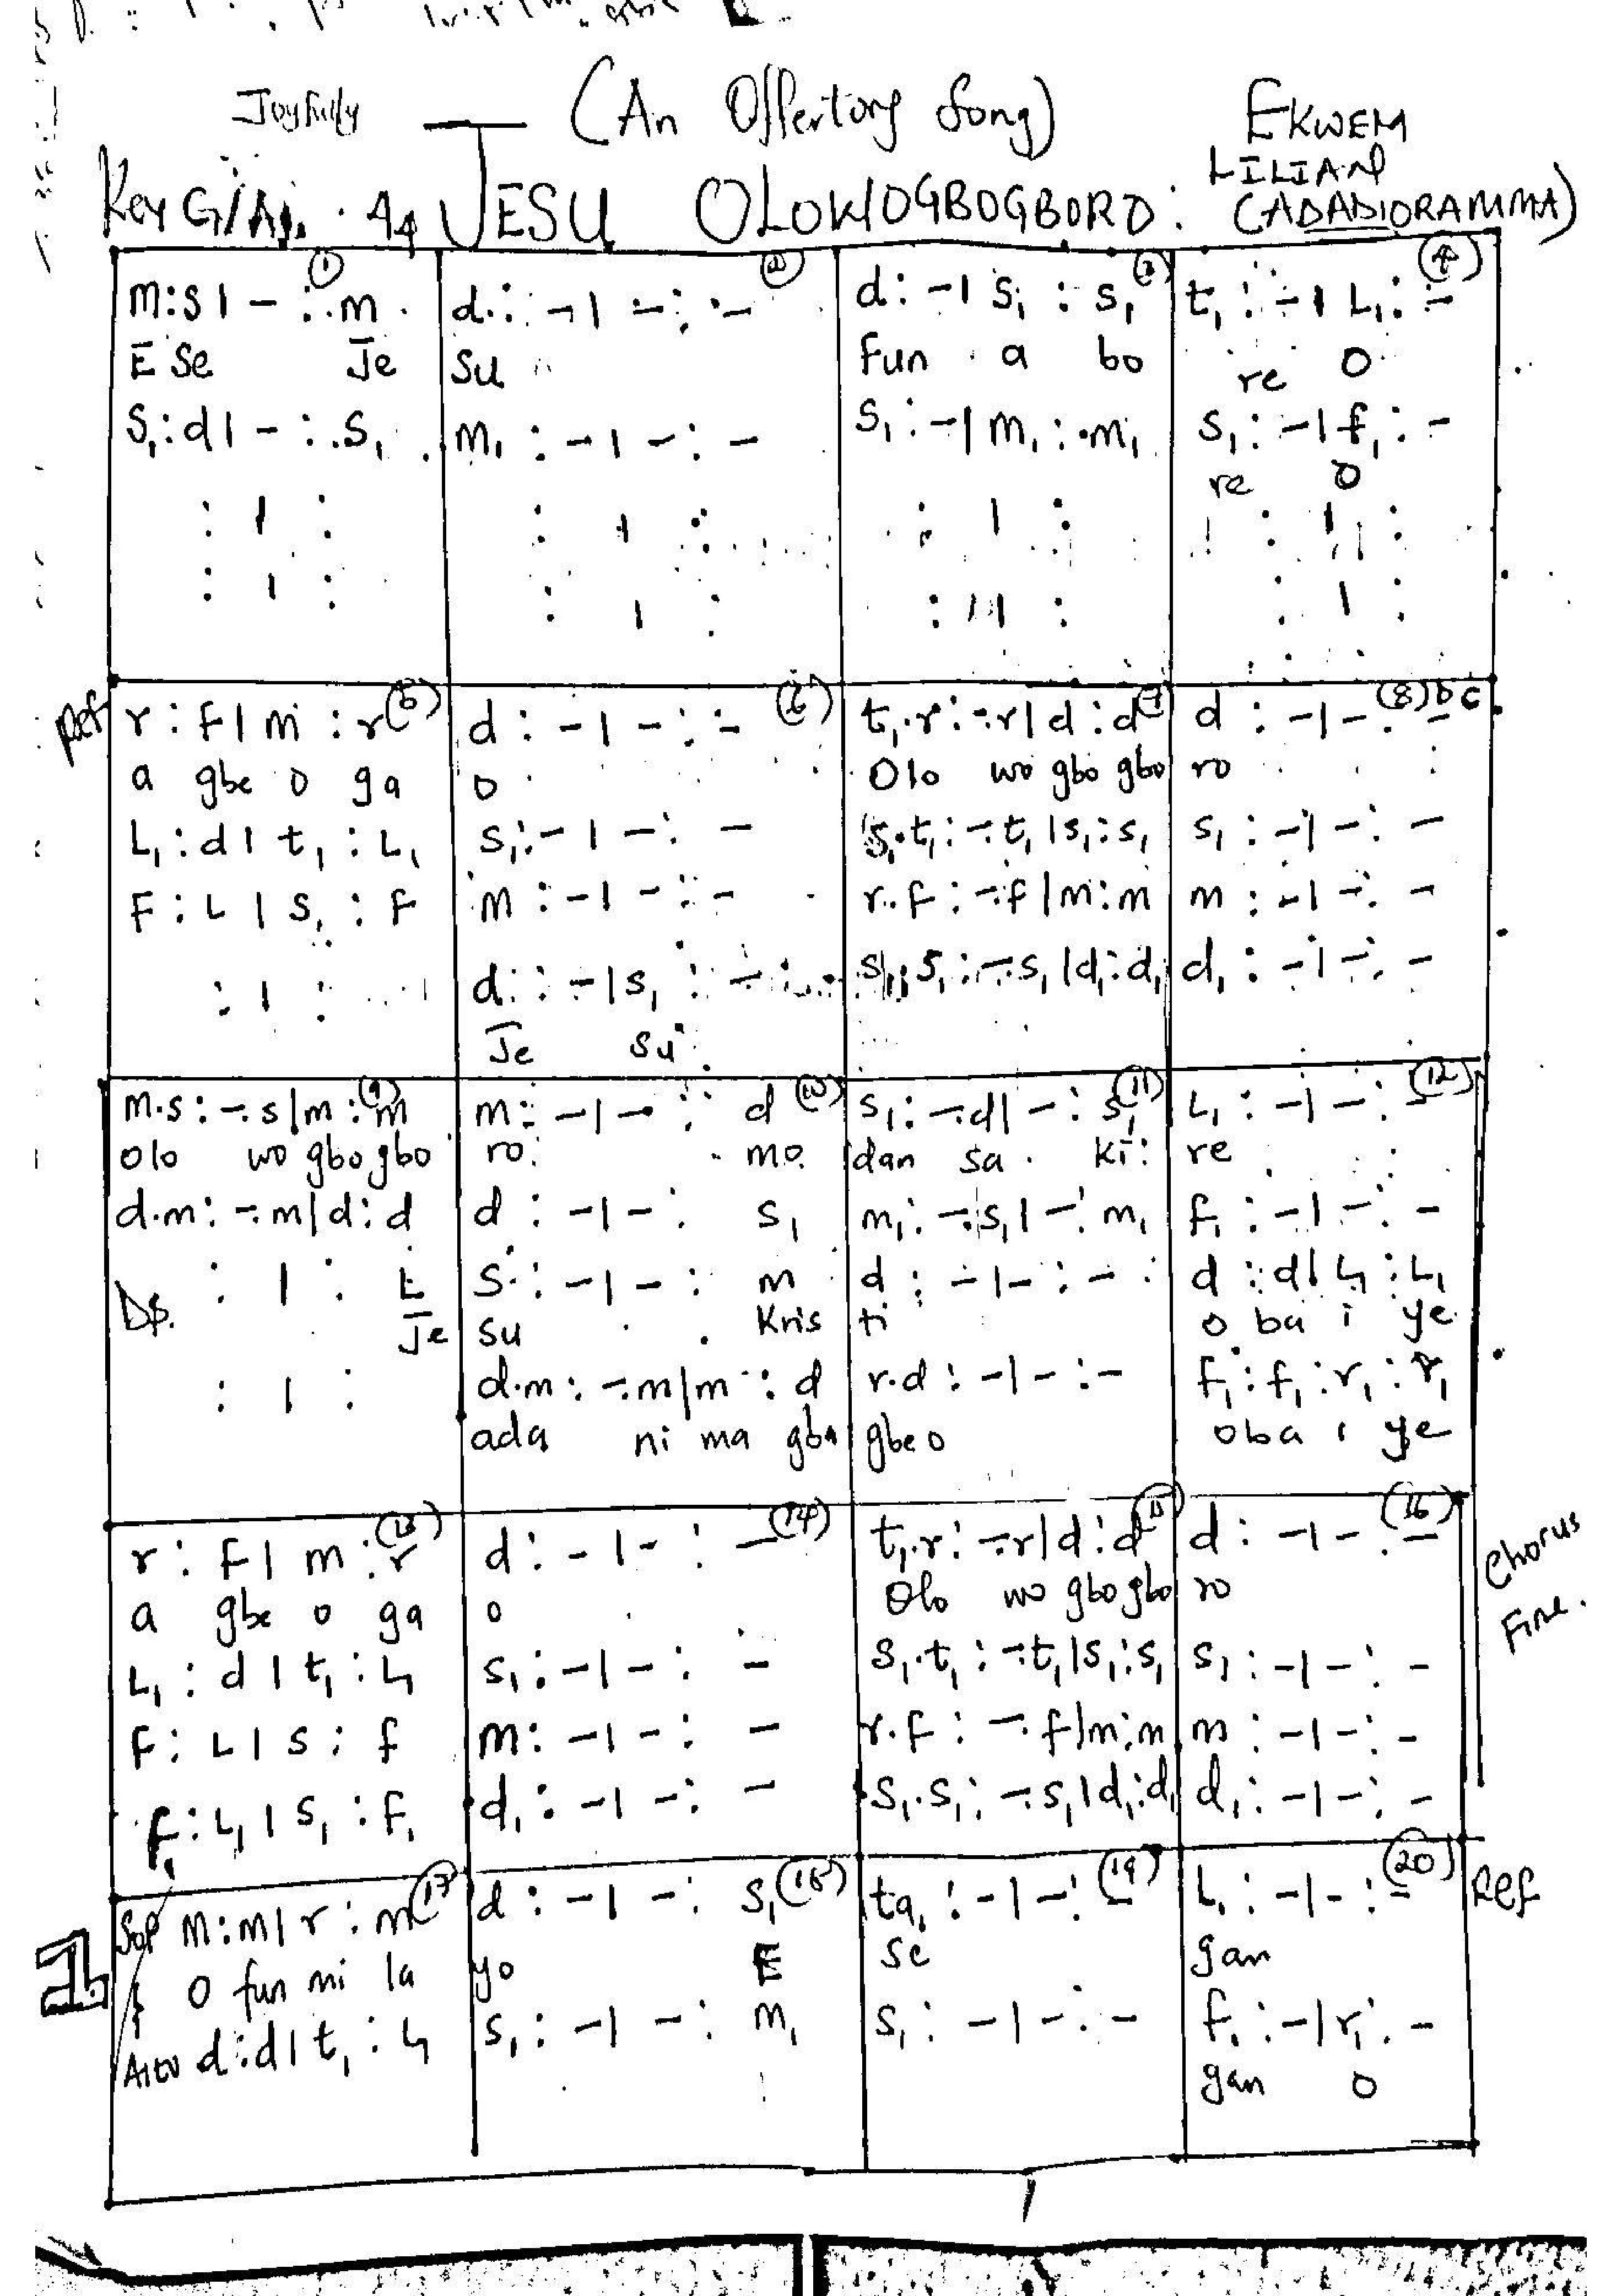 Joyfully (An Offertory Song) EKWEM
LILIAN
Key G/Ab. 44 JESU OLOWOGBOGBORO: (ADADIORAMMA)
(1) (2) (3) (4)
m:s| - :.m d: -| -: - d: -| s₁ : s₁ t₁ : -| L₁: -
E Se Je Su Fun a bo re O
S₁:d| - :.S₁ m₁ : -| -: - S₁: -| m₁ : .m₁ s₁ : -| f₁ : -
re O
: | : : | : : | : : | :
: | : : | : : | : : | :
Ref (5) (6) (7) (8) DC
r : F| m : r d : -| -: - t₁.r : -.r| d : d d : -| -: -
a gbe o ga o Olo wo gbo gbo ro
L₁ : d| t₁ : L₁ s₁: -| -: - s₁.t₁: -.t₁ |s₁: s₁ s₁ : -| -: -
F : L | S₁ : F m : -| -: - r.F : -.f |m: m m : -| -: -
: | : d : -|s₁ : - s₁.s₁: -.s₁ |d₁:d₁ d₁ : -| -: -
Je Su
(9) (10) (11) (12)
m.s: -.s|m : m m: -| -: d s₁: -.d| -: s₁ L₁ : -| -: -
olo wo gbo gbo ro mo dan sa ki re
d.m: -.m|d: d d : -| -: s₁ m₁: -.s₁| -: m₁ f₁ : -| -: -
D$. : | : L S : -| -: m d : -| - : - d : d| L₁ : L₁
Je su Kris ti o ba i ye
: | : d.m : -.m|m : d r.d : -| - : - f₁ : f₁ : r₁ : r₁
ada ni ma gba gbe o oba i ye
(13) (14) (15) (16)
r : F| m : r d : -| - : - t₁.r: -.r|d : d d : -| - : -
a gbe o ga o Olo wo gbo gbo ro
Chorus
Fine.
L₁ : d | t₁ : L₁ s₁ : -| -: - S₁.t₁ : -.t₁|s₁:s₁ s₁ : -| -: -
F : L | s : f m: -| -: - r.F : -.f|m:m m : -| -: -
F₁: L₁ | S₁ : F₁ d₁ : -| -: - S₁.S₁: -.s₁|d₁:d₁ d₁ : -| -: -
(17) (18) (19) (20) Ref
1 Sop m:m| r : m d : -| -: s₁ ta₁ : -| -: - L₁ : -| -: -
} O fun mi la yo E se gan
Alto d:d| t₁ : L₁ s₁ : -| -: m₁ s₁ : -| -: - f₁ : -|r₁ : -
gan o
1